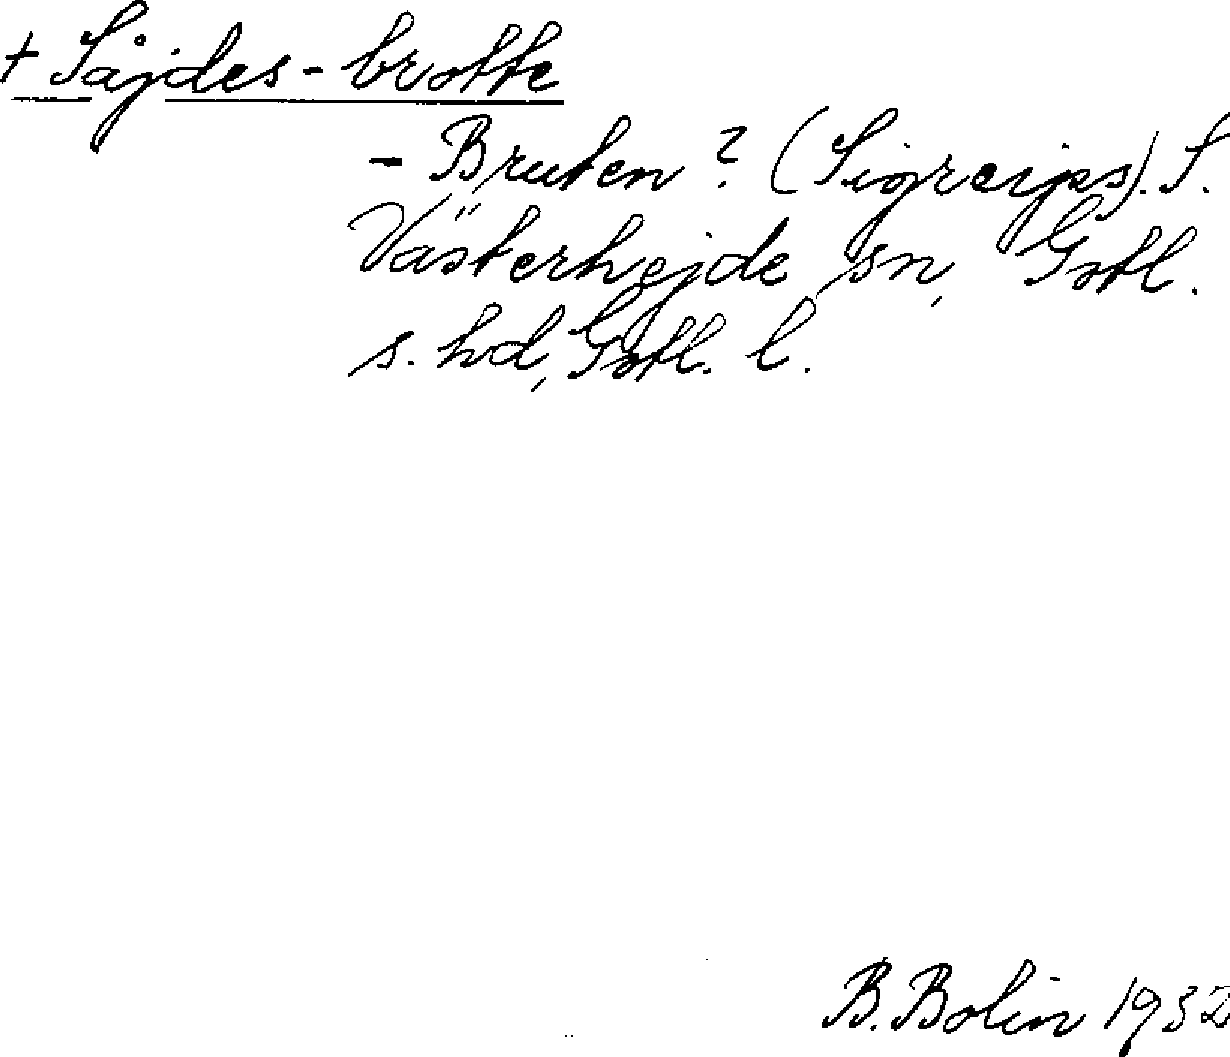 + Såjdes-brotte
- Bruten? (Sigreips). S.
Västerhejde sn, Gotl.
s. hd, Gotl. l.
B. Bolin 1932